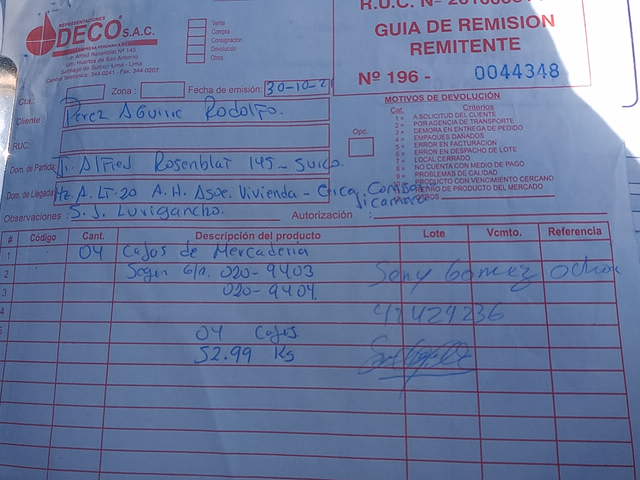 REPRESENTACIONES
DECO S.A.C.
Jr. Alfred Rosenblat Nº 145
Urb. Huertos de San Antonio
Santiago de Surco - Lima - Perú
Central Telefónica: 344 0241 - Fax: 344 0207
Venta
Compra
Consignación
Devolución
Otros
GUIA DE REMISION
REMITENTE
Nº 196 - 0044348
Cta:
Zona :
Fecha de emisión: 30-10-2
Cliente Perez Aguirre Rodolfo.
RUC:
Dom. de Partida Jr. Alfred Rosenblat 145 - Surco.
Dom. de Llegada Mz A. LT. 20 A.H. Asoc. Vivienda -
Jicamarca
Observaciones : S. J. Lurigancho.
Autorización :
Opc.
MOTIVOS DE DEVOLUCIÓN
Cat. Criterios
1 = A SOLICITUD DEL CLIENTE
2 = POR AGENCIA DE TRANSPORTE
3 = DEMORA EN ENTREGA DE PEDIDO
4 = EMPAQUES DAÑADOS
5 = ERROR EN FACTURACION
6 = ERROR EN DESPACHO DE LOTE
7 = LOCAL CERRADO
NO CUENTA CON MEDIO DE PAGO
PROBLEMAS DE CALIDAD
PRODUCTO CON VENCIMIENTO CERCANO
DE PRODUCTO DEL MERCADO
# Código Cant. Descripción del producto Lote Vcmto. Referencia
1 04 Cajas de Mercaderia
2 Segun G/R. 020-9403 Sony Gomez Ochoa
3 020-9404
4 47424236
5 04 Cajas
52.99 Kg